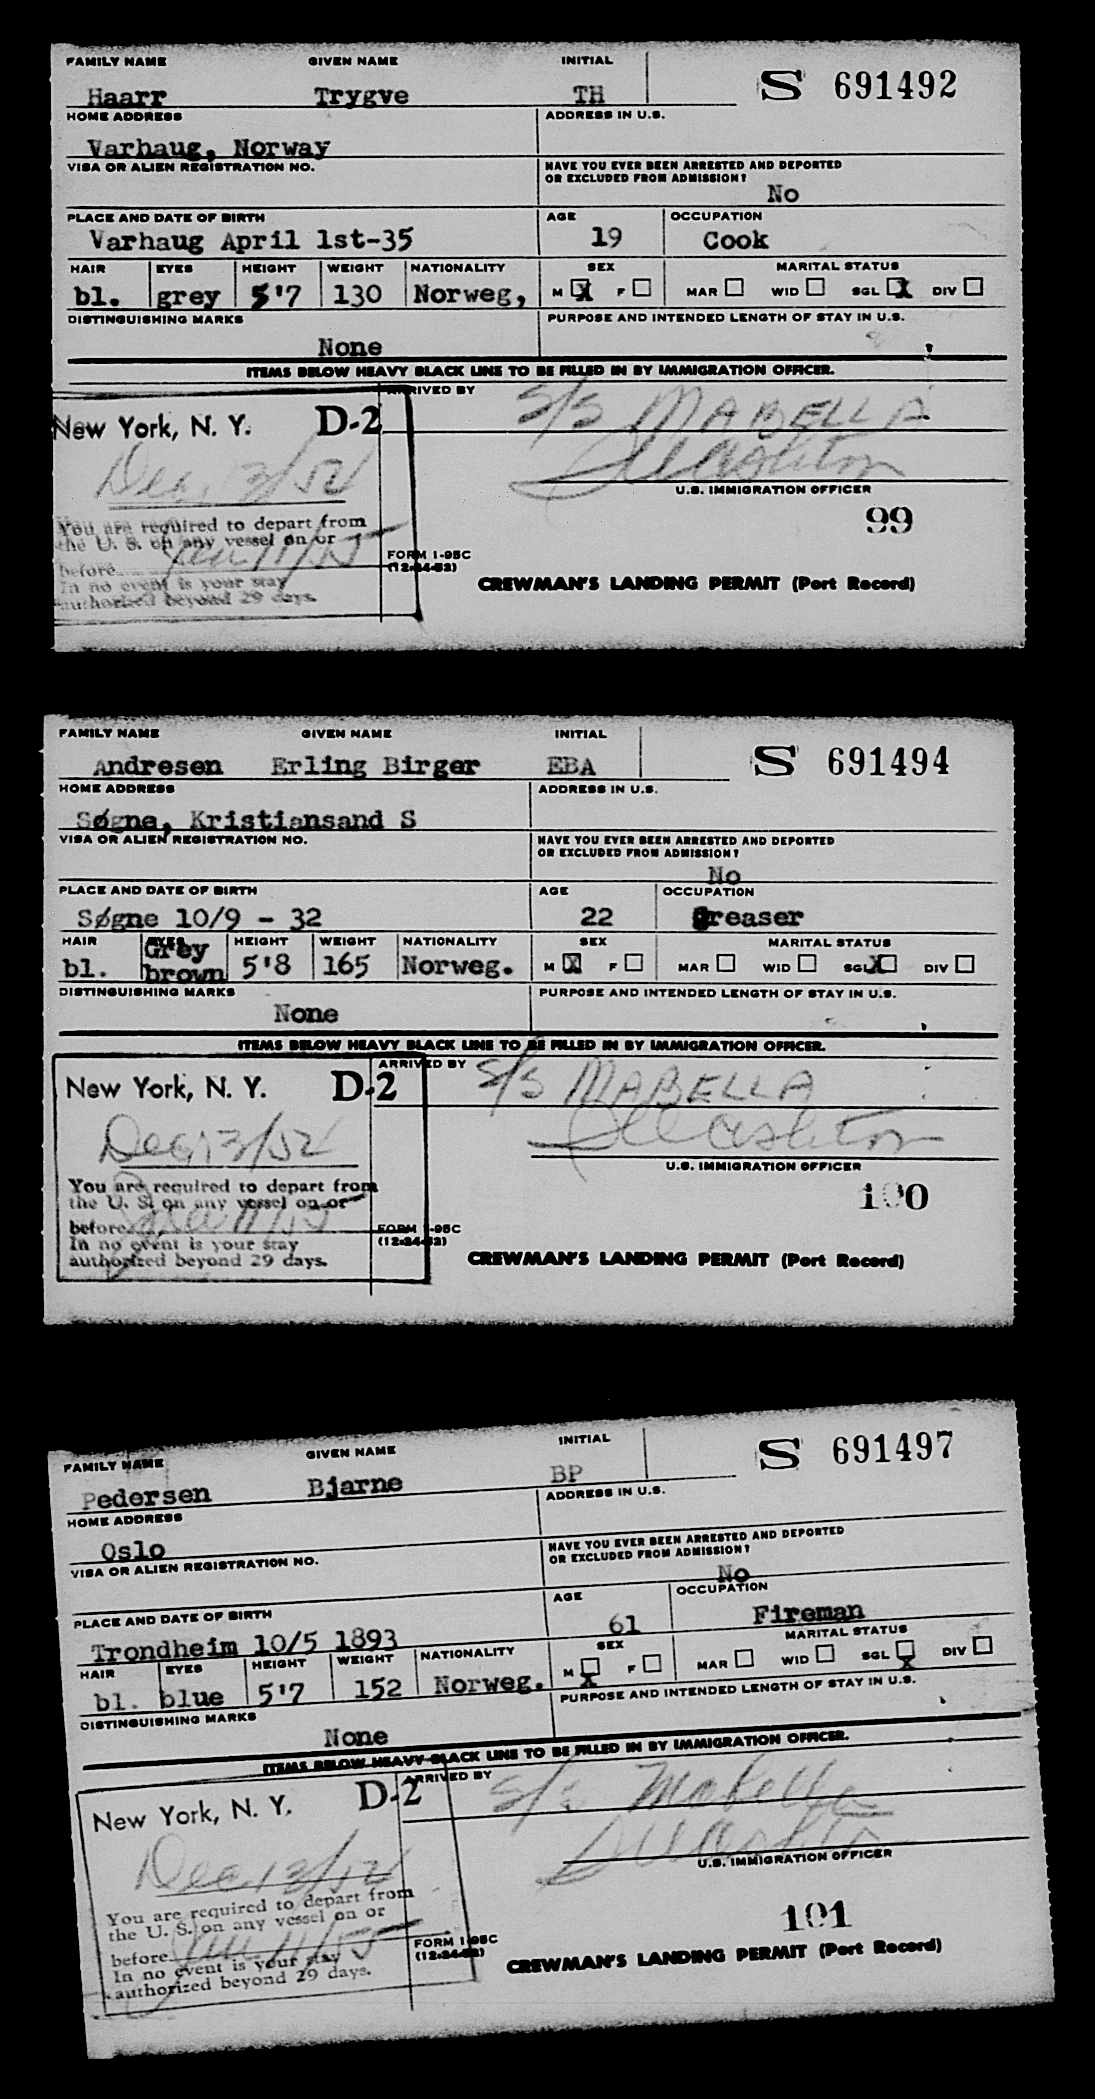 FAMILY NAME GIVEN NAME INITIAL
S 691492
Haarr Trygve TH
HOME ADDRESS ADDRESS IN U.S.
Varhaug, Norway
VISA OR ALIEN REGISTRATION NO. HAVE YOU EVER BEEN ARRESTED AND DEPORTED
OR EXCLUDED FROM ADMISSION?
No
PLACE AND DATE OF BIRTH AGE OCCUPATION
Varhaug April 1st-35 19 Cook
HAIR EYES HEIGHT WEIGHT NATIONALITY SEX MARITAL STATUS
bl. grey 5'7 130 Norweg, M X F MAR WID SGL X DIV
DISTINGUISHING MARKS PURPOSE AND INTENDED LENGTH OF STAY IN U.S.
None
ITEMS BELOW HEAVY BLACK LINE TO BE FILLED IN BY IMMIGRATION OFFICER.
ARRIVED BY S/S MABELLA
New York, N. Y. D-2
Dec 13/
U.S. IMMIGRATION OFFICER
99
You are required to depart from
the U. S. on any vessel on or
before
In no event is your stay
authorized beyond 29 days.
FORM I-95C
(12-24-52)
CREWMAN'S LANDING PERMIT (Port Record)
FAMILY NAME GIVEN NAME INITIAL
S 691494
Andresen Erling Birger EBA
HOME ADDRESS ADDRESS IN U.S.
Søgne, Kristiansand S
VISA OR ALIEN REGISTRATION NO. HAVE YOU EVER BEEN ARRESTED AND DEPORTED
OR EXCLUDED FROM ADMISSION?
No
PLACE AND DATE OF BIRTH AGE OCCUPATION
Søgne 10/9 - 32 22 Greaser
HAIR EYES HEIGHT WEIGHT NATIONALITY SEX MARITAL STATUS
Grey
bl. brown 5'8 165 Norweg. M X F MAR WID SGL X DIV
DISTINGUISHING MARKS PURPOSE AND INTENDED LENGTH OF STAY IN U.S.
None
ITEMS BELOW HEAVY BLACK LINE TO BE FILLED IN BY IMMIGRATION OFFICER.
ARRIVED BY S/S MABELLA
New York, N. Y. D-2
Dec 13/
U.S. IMMIGRATION OFFICER
100
You are required to depart from
the U. S. on any vessel on or
before
In no event is your stay
authorized beyond 29 days.
FORM I-95C
(12-24-52)
CREWMAN'S LANDING PERMIT (Port Record)
FAMILY NAME GIVEN NAME INITIAL
S 691497
Pedersen Bjarne BP
HOME ADDRESS ADDRESS IN U.S.
Oslo
VISA OR ALIEN REGISTRATION NO. HAVE YOU EVER BEEN ARRESTED AND DEPORTED
OR EXCLUDED FROM ADMISSION?
No
PLACE AND DATE OF BIRTH AGE OCCUPATION
Trondheim 10/5 1893 61 Fireman
HAIR EYES HEIGHT WEIGHT NATIONALITY SEX MARITAL STATUS
bl. blue 5'7 152 Norweg. M X F MAR WID SGL X DIV
DISTINGUISHING MARKS PURPOSE AND INTENDED LENGTH OF STAY IN U.S.
None
ITEMS BELOW HEAVY BLACK LINE TO BE FILLED IN BY IMMIGRATION OFFICER.
ARRIVED BY S/S Mabella
New York, N. Y. D-2
Dec 13/
U.S. IMMIGRATION OFFICER
101
You are required to depart from
the U. S. on any vessel on or
before
In no event is your stay
authorized beyond 29 days.
FORM I-95C
(12-24-52)
CREWMAN'S LANDING PERMIT (Port Record)